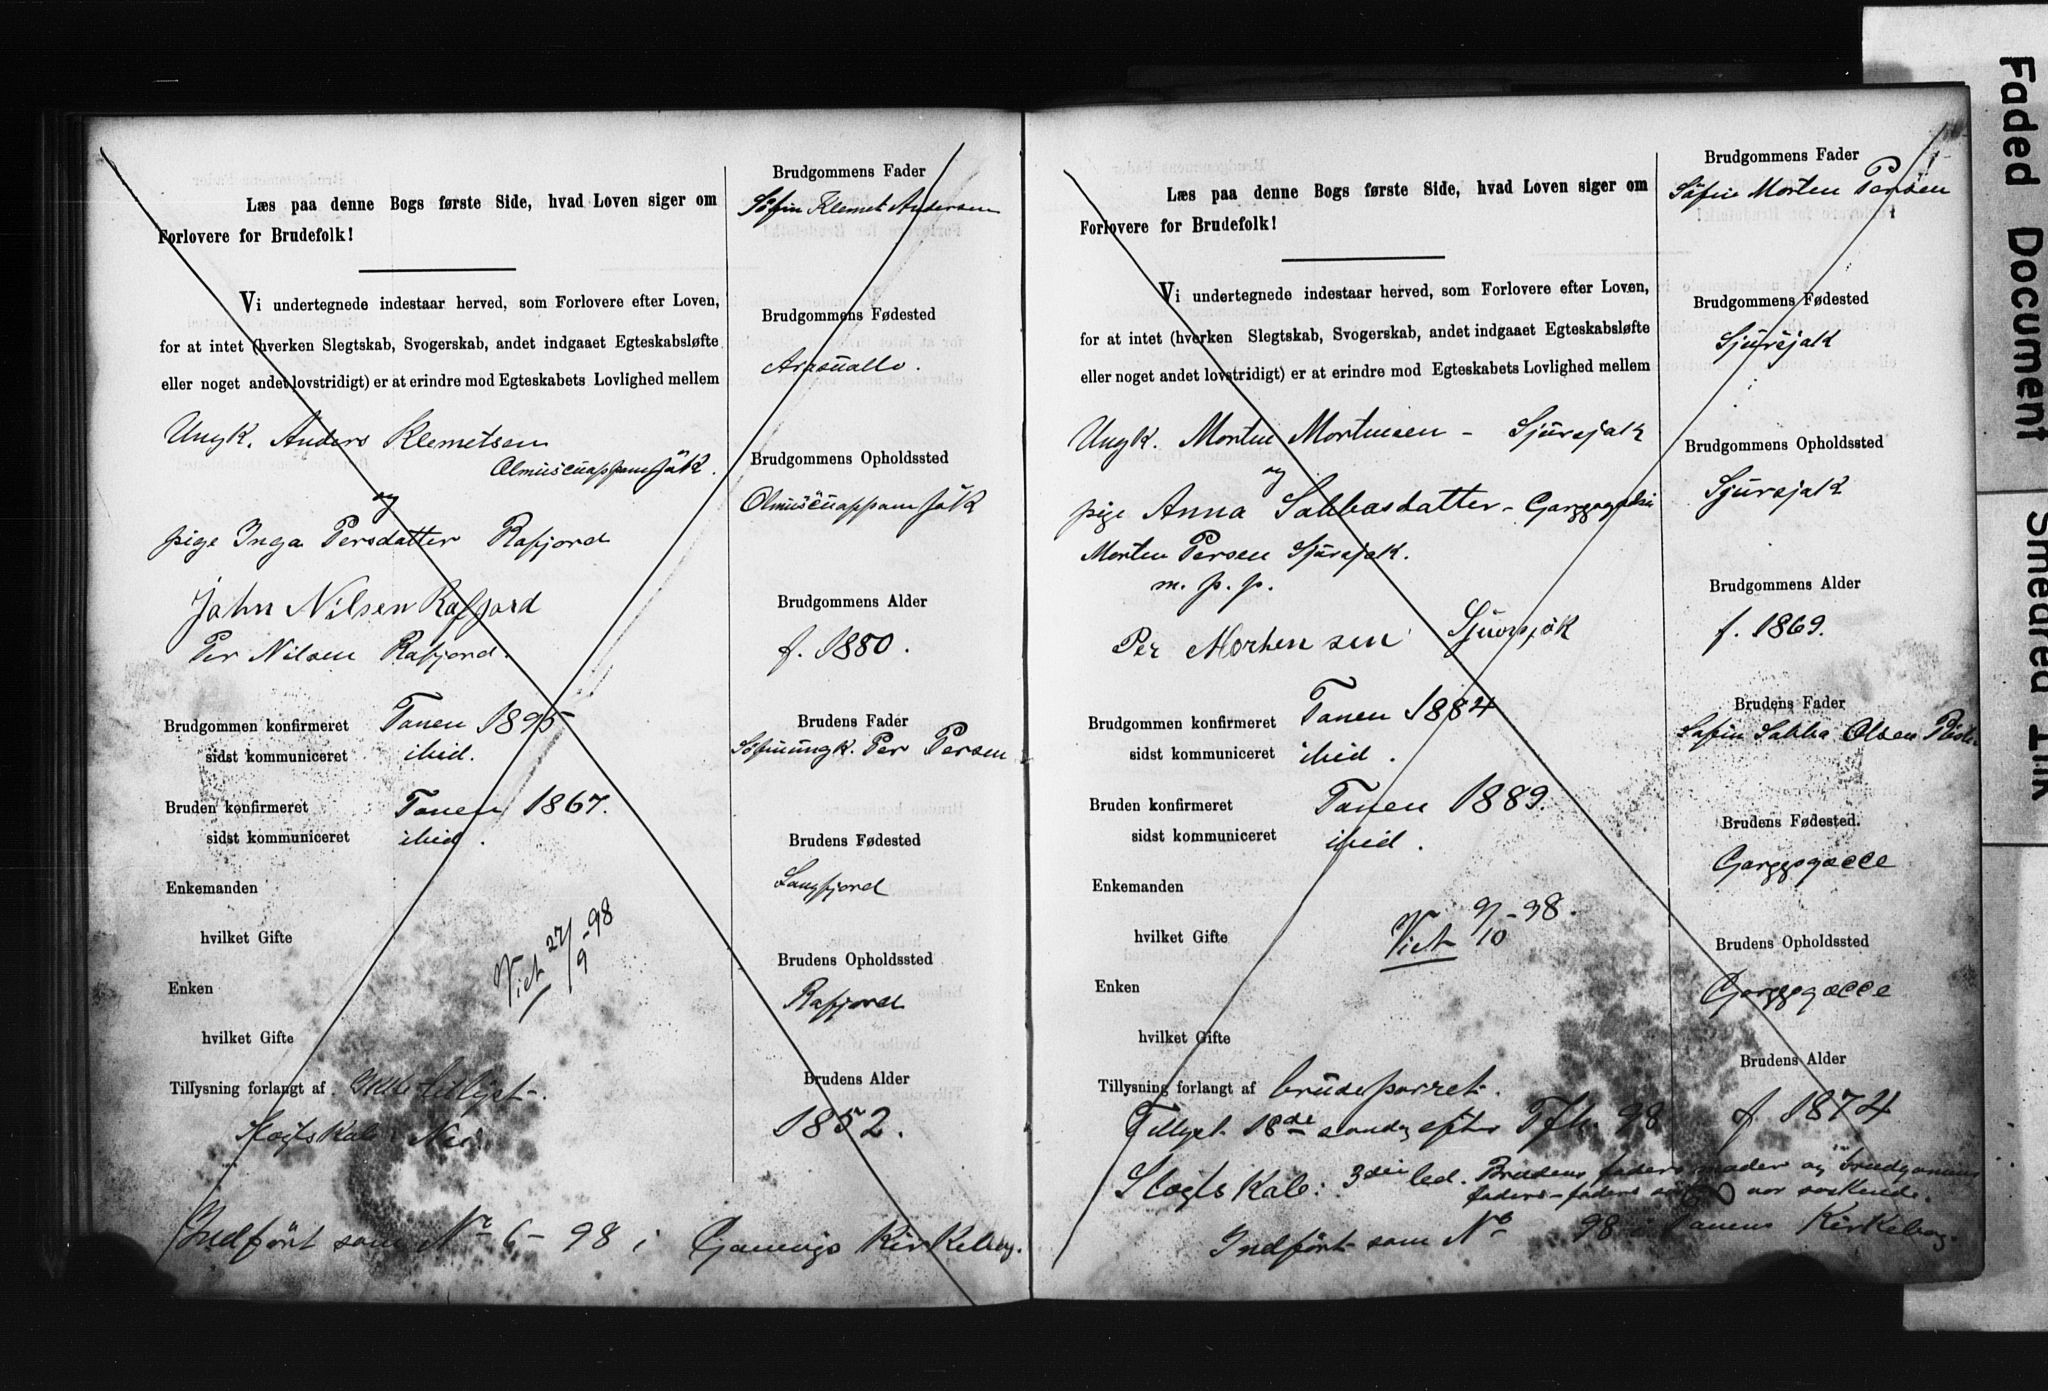 Læs paa denne Bogs første Side, hvad Loven siger om
Forlovere for Brudefolk!
Vi undertegnede indestaar herved, som Forlovere efter Loven,
for at intet (hverken Slegtskab, Svogerskab, andet indgaaet Egteskabsløfte
eller noget andet lovstridigt) er at erindre mod Egteskabets Lovlighed mellem
Ungk. Anders Klemetsen
Olmuscuappamjåk.
og
pige Inga Persdatter Rafjord
John Nilsen Rafjord
Per Nilsen Rafjord.
Brudgommen konfirmeret Tanen 1895
sidst kommuniceret ibid.
Bruden konfirmeret Tanen 1867.
sidst kommuniceret ibid.
Enkemanden
hvilket Gifte
Viet 27/9-98
Enken
hvilket Gifte
Tillysning forlangt af Ikke tillyst.
Slegtskab: Nei
Indført som No 6-98 i Kirkebog.
Brudgommens Fader
Søfin Klemet Andersen
Brudgommens Fødested
Brudgommens Opholdssted
Olmuscuappamjåk
Brudgommens Alder
f. 1880.
Brudens Fader
Søfinungk. Per Persen
Brudens Fødested
Langfjord
Brudens Opholdssted
Rafjord
Brudens Alder
1852.
Læs paa denne Bogs første Side, hvad Loven siger om
Forlovere for Brudefolk!
Vi undertegnede indestaar herved, som Forlovere efter Loven,
for at intet (hverken Slegtskab, Svogerskab, andet indgaaet Egteskabsløfte
eller noget andet lovstridigt) er at erindre mod Egteskabets Lovlighed mellem
Ungk. Morten Mortensen - Sjursjok
og
pige Anna Sabbasdatter -
Morten Persen Sjursjok.
m. p. p.
Per Mortensen Sjursjok
Brudgommen konfirmeret Tanen 1884
sidst kommuniceret ibid.
Bruden konfirmeret Tanen 1889.
sidst kommuniceret ibid.
Enkemanden
hvilket Gifte
Viet 9/10-98.
Enken
hvilket Gifte
Tillysning forlangt af brudeparret.
Tillyst 18de søndag efter Tfh. 98
Slegtskab: 3die led. Brudens faders moder og brudgommens
faders-faders var søskende.
Indført som No 98 i Tanens Kirkebog.
Brudgommens Fader
Søfin Morten Persen
Brudgommens Fødested
Sjursjok
Brudgommens Opholdssted
Sjursjok
Brudgommens Alder
f. 1869.
Brudens Fader
Søfin Sabba Olsen
Brudens Fødested.
Garggogæcce
Brudens Opholdssted
Garggogæcce
Brudens Alder
f. 1874
Faded Document
Smeared Ink